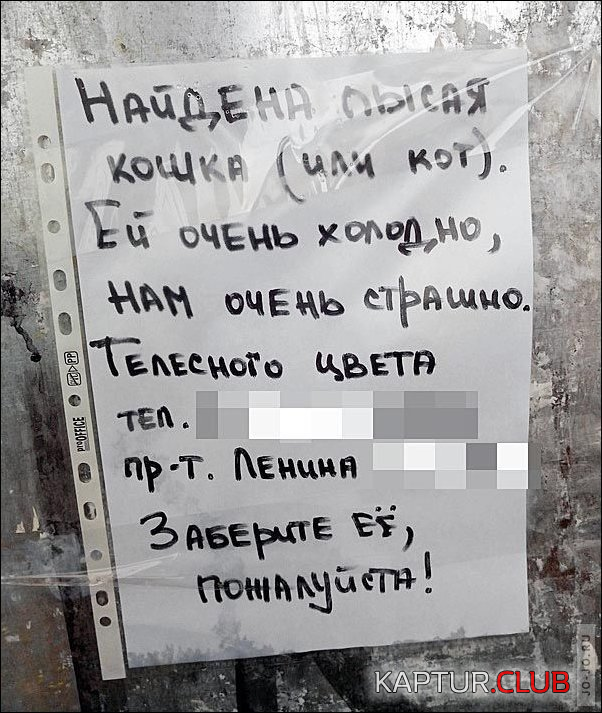 НАЙДЕНА ЛЫСАЯ
КОШКА (ИЛИ КОТ).
ЕЙ ОЧЕНЬ ХОЛОДНО,
НАМ ОЧЕНЬ СТРАШНО.
ТЕЛЕСНОГО ЦВЕТА
ТЕЛ.
ПР-Т. ЛЕНИНА
ЗАБЕРИТЕ ЕЁ,
ПОЖАЛУЙСТА!
PP
proOFFICE
KAPTUR.CLUB
JO-JO.RU